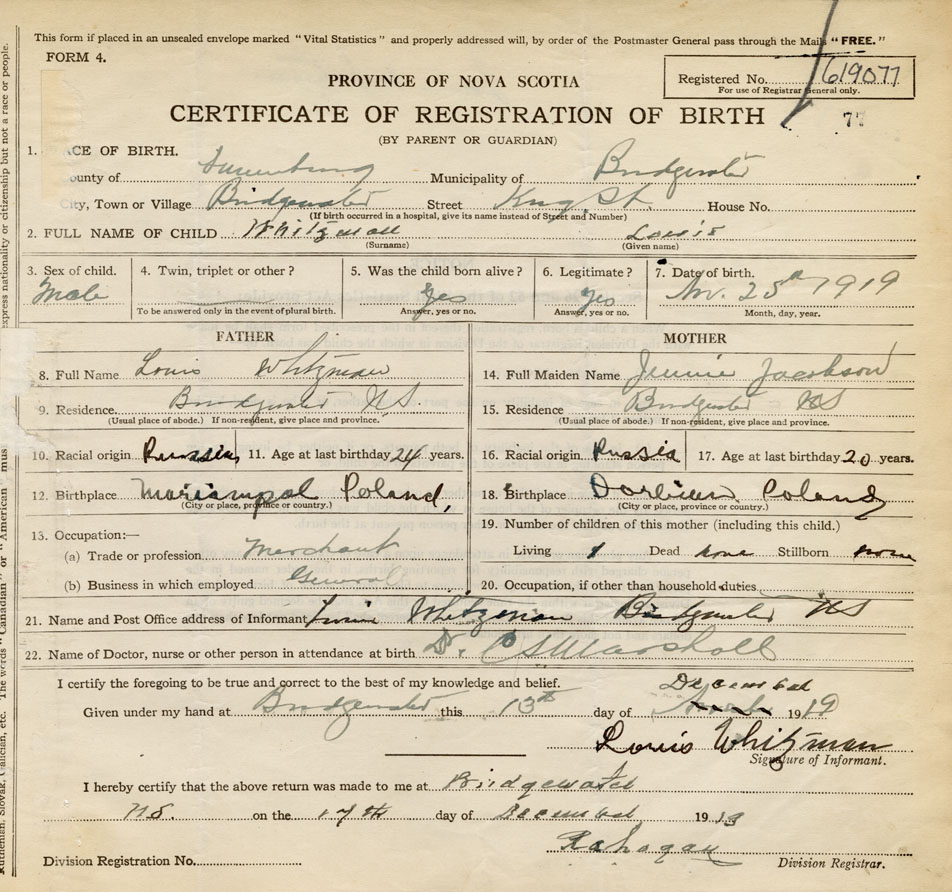 This form if placed in an unsealed envelope marked "Vital Statistics" and properly addressed will, by order of the Postmaster General pass through the Mails "FREE."
FORM 4.
PROVINCE OF NOVA SCOTIA
Registered No. 619077
For use of Registrar General only.
CERTIFICATE OF REGISTRATION OF BIRTH
77
(BY PARENT OR GUARDIAN)
1. CE OF BIRTH.
ounty of Lunenburg Municipality of Bridgewater
City, Town or Village Bridgewater Street King St. House No.
(If birth occurred in a hospital, give its name instead of Street and Number)
2. FULL NAME OF CHILD Whitzman Louis
(Surname) (Given name)
3. Sex of child. 4. Twin, triplet or other? 5. Was the child born alive? 6. Legitimate? 7. Date of birth.
Male Yes Yes Nov. 25th 1919
To be answered only in the event of plural birth. Answer, yes or no. Answer, yes or no. Month, day, year.
FATHER MOTHER
8. Full Name Louis Whitzman 14. Full Maiden Name Jennie Jacobson
9. Residence Bridgewater N.S. 15. Residence Bridgewater NS
(Usual place of abode.) If non-resident, give place and province. (Usual place of abode.) If non-resident, give place and province.
10. Racial origin Russian 11. Age at last birthday 24 years. 16. Racial origin Russia 17. Age at last birthday 20 years.
12. Birthplace Mariampol Poland, 18. Birthplace Poland
(City or place, province or country.) (City or place, province or country.)
13. Occupation:— 19. Number of children of this mother (including this child.)
(a) Trade or profession Merchant Living 1 Dead none Stillborn none
(b) Business in which employed General 20. Occupation, if other than household duties
21. Name and Post Office address of Informant Louis Whitzman Bridgewater NS
22. Name of Doctor, nurse or other person in attendance at birth Dr. Marshall
I certify the foregoing to be true and correct to the best of my knowledge and belief. December
Given under my hand at Bridgewater this 13th day of 1919
Louis Whitzman
Signature of Informant.
I hereby certify that the above return was made to me at Bridgewater
NS. on the 17th day of December 1919
Division Registration No. Division Registrar.
express nationality or citizenship but not a race or people.
The words "Canadian" or "American" mus
Ruthenian, Slovak, Galician, etc.